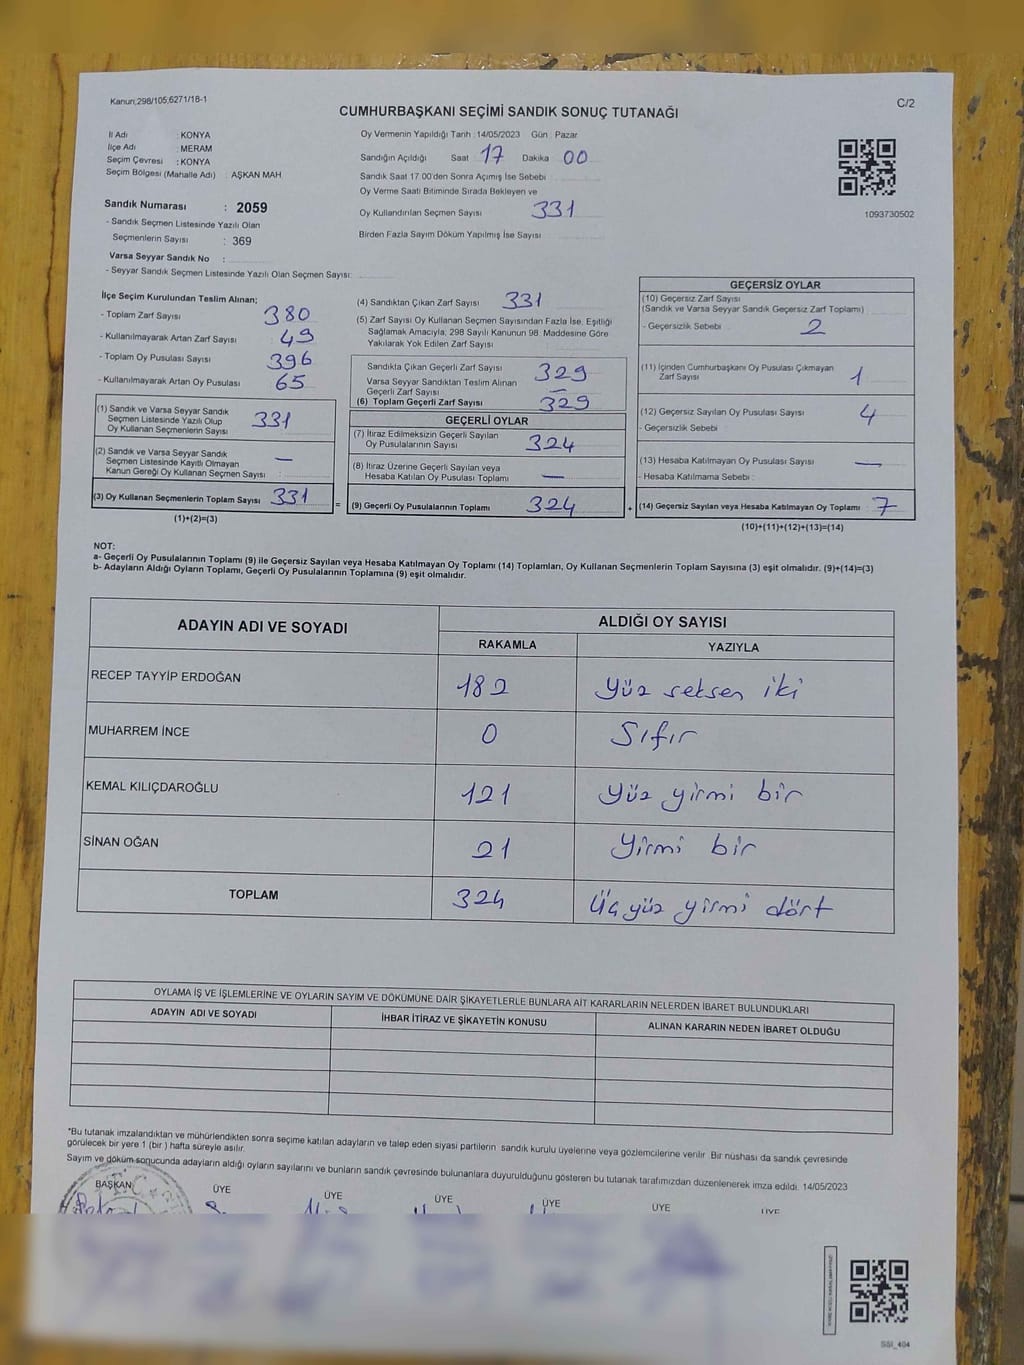 Kanun;298/105;6271/18-1
C/2
CUMHURBAŞKANI SEÇİMİ SANDIK SONUÇ TUTANAĞI
İl Adı : KONYA
İlçe Adı : MERAM
Seçim Çevresi : KONYA
Seçim Bölgesi (Mahalle Adı) : AŞKAN MAH
Sandık Numarası : 2059
- Sandık Seçmen Listesinde Yazılı Olan
Seçmenlerin Sayısı : 369
Varsa Seyyar Sandık No :
- Seyyar Sandık Seçmen Listesinde Yazılı Olan Seçmen Sayısı:
Oy Vermenin Yapıldığı Tarih : 14/05/2023 Gün : Pazar
Sandığın Açıldığı Saat 17 Dakika 00
Sandık Saat 17.00'den Sonra Açımış İse Sebebi
Oy Verme Saati Bitiminde Sırada Bekleyen ve
Oy Kullandırılan Seçmen Sayısı 331
Birden Fazla Sayım Döküm Yapılmış İse Sayısı
1093730502
İlçe Seçim Kurulundan Teslim Alınan;
- Toplam Zarf Sayısı 380
- Kullanılmayarak Artan Zarf Sayısı 49
- Toplam Oy Pusulası Sayısı 396
- Kullanılmayarak Artan Oy Pusulası 65
(1) Sandık ve Varsa Seyyar Sandık
Seçmen Listesinde Yazılı Olup
Oy Kullanan Seçmenlerin Sayısı 331
(2) Sandık ve Varsa Seyyar Sandık
Seçmen Listesinde Kayıtlı Olmayan
Kanun Gereği Oy Kullanan Seçmen Sayısı : —
(3) Oy Kullanan Seçmenlerin Toplam Sayısı 331 =
(1)+(2)=(3)
(4) Sandıktan Çıkan Zarf Sayısı 331
(5) Zarf Sayısı Oy Kullanan Seçmen Sayısından Fazla İse, Eşitliği
Sağlamak Amacıyla, 298 Sayılı Kanunun 98. Maddesine Göre
Yakılarak Yok Edilen Zarf Sayısı
Sandıkta Çıkan Geçerli Zarf Sayısı 329
Varsa Seyyar Sandıktan Teslim Alınan
Geçerli Zarf Sayısı —
(6) Toplam Geçerli Zarf Sayısı 329
GEÇERLİ OYLAR
(7) İtiraz Edilmeksizin Geçerli Sayılan
Oy Pusulalarının Sayısı 324
(8) İtiraz Üzerine Geçerli Sayılan veya
Hesaba Katılan Oy Pusulası Toplamı —
(9) Geçerli Oy Pusulalarının Toplamı 324 +
GEÇERSİZ OYLAR
(10) Geçersiz Zarf Sayısı
(Sandık ve Varsa Seyyar Sandık Geçersiz Zarf Toplamı)
- Geçersizlik Sebebi 2
(11) İçinden Cumhurbaşkanı Oy Pusulası Çıkmayan
Zarf Sayısı 1
(12) Geçersiz Sayılan Oy Pusulası Sayısı 4
- Geçersizlik Sebebi :
(13) Hesaba Katılmayan Oy Pusulası Sayısı —
- Hesaba Katılmama Sebebi :
(14) Geçersiz Sayılan veya Hesaba Katılmayan Oy Toplamı 7
(10)+(11)+(12)+(13)=(14)
NOT:
a- Geçerli Oy Pusulalarının Toplamı (9) ile Geçersiz Sayılan veya Hesaba Katılmayan Oy Toplamı (14) Toplamları, Oy Kullanan Seçmenlerin Toplam Sayısına (3) eşit olmalıdır. (9)+(14)=(3)
b- Adayların Aldığı Oyların Toplamı, Geçerli Oy Pusulalarının Toplamına (9) eşit olmalıdır.
ADAYIN ADI VE SOYADI
ALDIĞI OY SAYISI
RAKAMLA YAZIYLA
RECEP TAYYİP ERDOĞAN 182 Yüz seksen iki
MUHARREM İNCE 0 Sıfır
KEMAL KILIÇDAROĞLU 121 Yüz yirmi bir
SİNAN OĞAN 21 Yirmi bir
TOPLAM 324 Üç yüz yirmi dört
OYLAMA İŞ VE İŞLEMLERİNE VE OYLARIN SAYIM VE DÖKÜMÜNE DAİR ŞİKAYETLERLE BUNLARA AİT KARARLARIN NELERDEN İBARET BULUNDUKLARI
ADAYIN ADI VE SOYADI İHBAR İTİRAZ VE ŞİKAYETİN KONUSU ALINAN KARARIN NEDEN İBARET OLDUĞU
*Bu tutanak imzalandıktan ve mühürlendikten sonra seçime katılan adayların ve talep eden siyasi partilerin sandık kurulu üyelerine veya gözlemcilerine verilir. Bir nüshası da sandık çevresinde
görülecek bir yere 1 (bir ) hafta süreyle asılır.
Sayım ve döküm sonucunda adayların aldığı oyların sayılarını ve bunların sandık çevresinde bulunanlara duyurulduğunu gösteren bu tutanak tarafımızdan düzenlenerek imza edildi. 14/05/2023
BAŞKAN ÜYE ÜYE ÜYE ÜYE ÜYE ÜYE
SSI_404